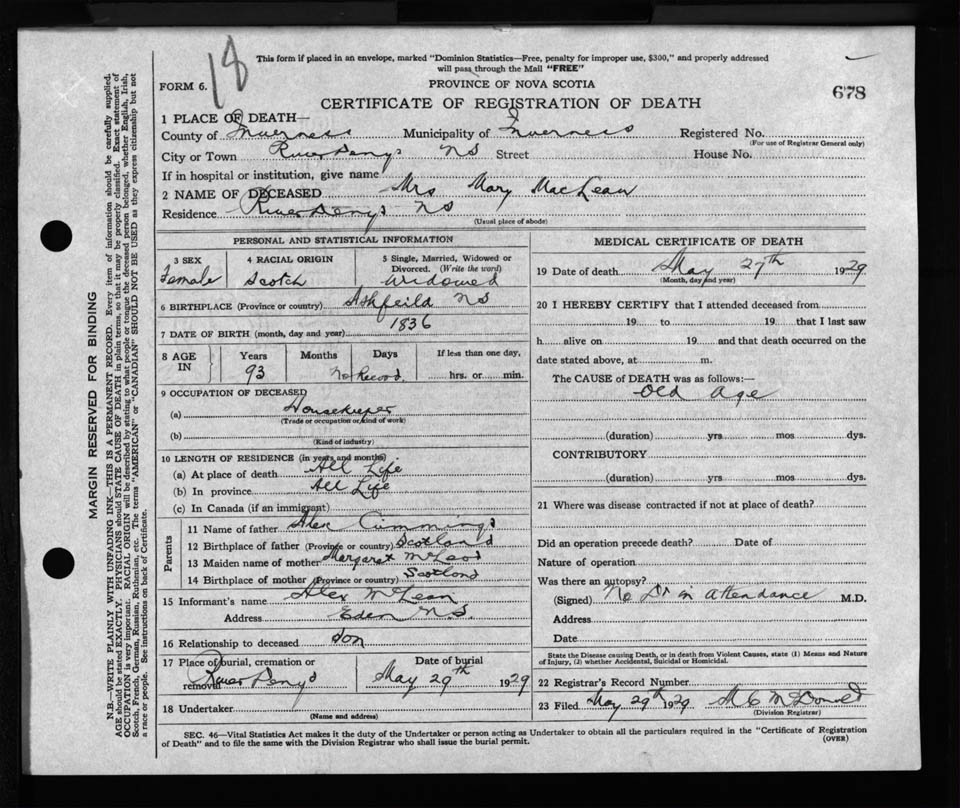 18
This form if placed in an envelope, marked "Dominion Statistics—Free, penalty for improper use, $300," and properly addressed
will pass through the Mail "FREE"
FORM 6.
PROVINCE OF NOVA SCOTIA
678
CERTIFICATE OF REGISTRATION OF DEATH
1 PLACE OF DEATH—
County of Inverness Municipality of Inverness Registered No.
(For use of Registrar General only)
City or Town River Denys NS Street House No.
If in hospital or institution, give name
2 NAME OF DECEASED Mrs Mary MacLean
Residence River Denys NS
(Usual place of abode)
PERSONAL AND STATISTICAL INFORMATION
3 SEX 4 RACIAL ORIGIN 5 Single, Married, Widowed or
Divorced. (Write the word)
Female Scotch Widowed
6 BIRTHPLACE (Province or country) Ashfeild NS
7 DATE OF BIRTH (month, day and year) 1836
8 AGE IN Years Months Days If less than one day,
93 No Record hrs. or min.
9 OCCUPATION OF DECEASED
(a) Housekeeper
(Trade or occupation or kind of work)
(b)
(Kind of industry)
10 LENGTH OF RESIDENCE (in years and months)
(a) At place of death All Life
(b) In province All Life
(c) In Canada (if an immigrant)
Parents
11 Name of father Alex Cimmings
12 Birthplace of father (Province or country) Scotland
13 Maiden name of mother Margaret McLeod
14 Birthplace of mother (Province or country) Scotland
15 Informant's name Alex McLean
Address Eden N.S.
16 Relationship to deceased son
17 Place of burial, cremation or Date of burial
removal River Denys May 29th 1929
18 Undertaker
(Name and address)
MEDICAL CERTIFICATE OF DEATH
19 Date of death May 27th 1929
(Month, day and year)
20 I HEREBY CERTIFY that I attended deceased from
19 to 19 that I last saw
h alive on 19 and that death occurred on the
date stated above, at m.
The CAUSE of DEATH was as follows:—
Old Age
(duration) yrs mos dys.
CONTRIBUTORY
(duration) yrs mos dys.
21 Where was disease contracted if not at place of death?
Did an operation precede death? Date of
Nature of operation
Was there an autopsy?
(Signed) No Dr in attendance M.D.
Address
Date
State the Disease causing Death, or in death from Violent Causes, state (1) Means and Nature
of Injury, (2) whether Accidental, Suicidal or Homicidal.
22 Registrar's Record Number
23 Filed May 29th 1929 M C McDonald
(Division Registrar)
SEC. 46—Vital Statistics Act makes it the duty of the Undertaker or person acting as Undertaker to obtain all the particulars required in the "Certificate of Registration
of Death" and to file the same with the Division Registrar who shall issue the burial permit.
(OVER)
MARGIN RESERVED FOR BINDING
N.B.—WRITE PLAINLY WITH UNFADING INK—THIS IS A PERMANENT RECORD. Every item of information should be carefully supplied.
AGE should be stated EXACTLY. PHYSICIANS should STATE CAUSE OF DEATH in plain terms, so that it may be properly classified. Exact statement of
OCCUPATION is very important. RACIAL ORIGIN will be described by stating to what people or tongue the deceased person belonged, whether English, Irish,
Scotch, French, German, Russian, Ruthenian, etc. The terms "AMERICAN" or "CANADIAN" SHOULD NOT BE USED as they express citizenship but not
a race or people. See instructions on back of Certificate.